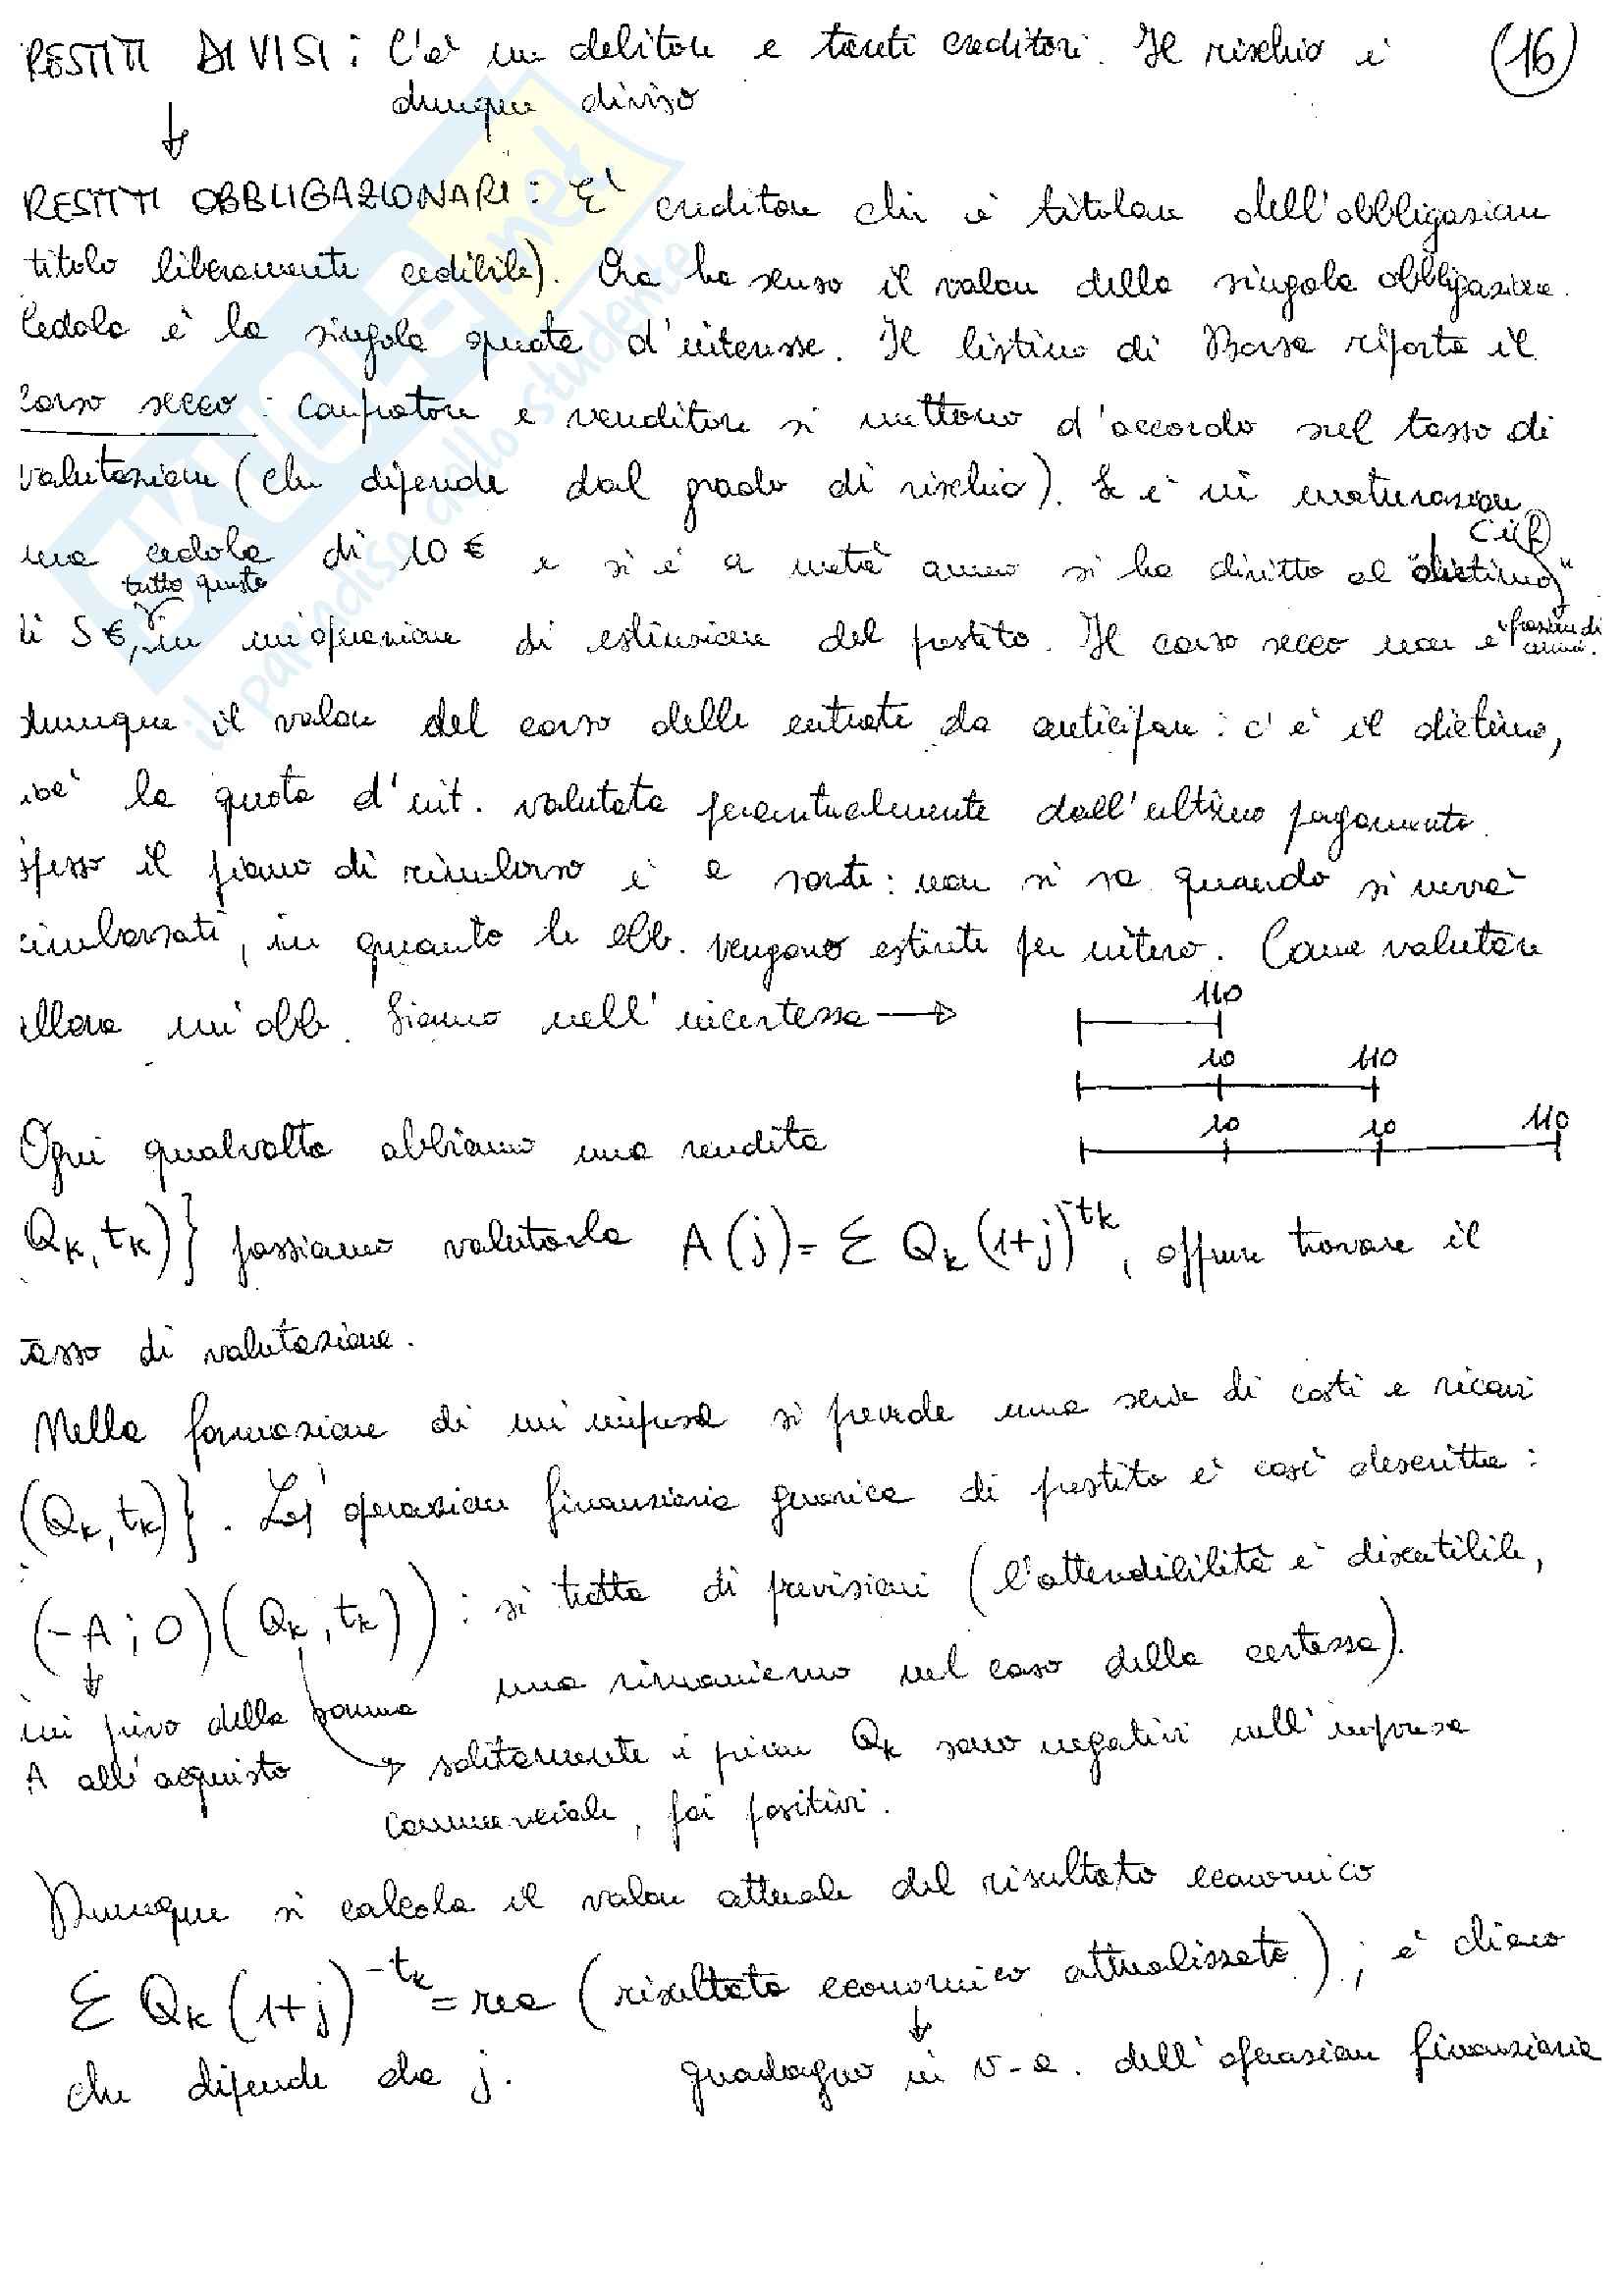 RESTITI DIVISI: C'è un debitore e tanti creditori. Il rischio è (16)
dunque diviso
RESTITI OBBLIGAZIONARI: E' creditore chi è titolare dell'obbligazione
titolo liberamente cedibile). Ora ha senso il valore della singola obbligazione.
Cedola è la singola quota d'interesse. Il listino di Borsa riporta il
corso secco: compratore e venditore si mettono d'accordo sul tasso di
valutazione (che dipende dal grado di rischio). Se è in maturazione
una cedola di 10 € e si è a metà anno si ha diritto al "dietimo"
tutto questo
di 5€, in un'operazione di estinzione del prestito. Il corso secco non è
dunque il valore del corso delle entrate da anticipare: c'è il dietimo,
cioè la quota d'int. valutata percentualmente dall'ultimo pagamento.
spesso il piano di rimborso è a sorte: non si sa quando si verrà
rimborsati, in quanto le obb. vengono estinte per intero. Come valutare
allora un'obb. Siamo nell'incertezza →
110
10 110
10 10 110
Ogni qualvolta abbiamo una rendita
Qk, tk)} possiamo valutarla A(j)= Σ Qk (1+j)^-tk, oppure trovare il
tasso di valutazione.
Nella formazione di un'impresa si prevede una serie di costi e ricavi
(Qk, tk)}. L'operazione finanziaria generica di prestito è così descritta:
(-A; 0)(Qk, tk)): si tratta di previsioni (l'attendibilità è discutibile,
ma rimaniamo nel caso della certezza).
mi privo della somma
A all'acquisto
→ solitamente i primi Qk sono negativi nell'impresa
commerciale, poi positivi.
Dunque si calcola il valore attuale del risultato economico
Σ Qk (1+j)^-tk = rea (risultato economico attualizzato); è chiaro
che dipende da j. guadagno in v-a. dell'operazione finanziaria